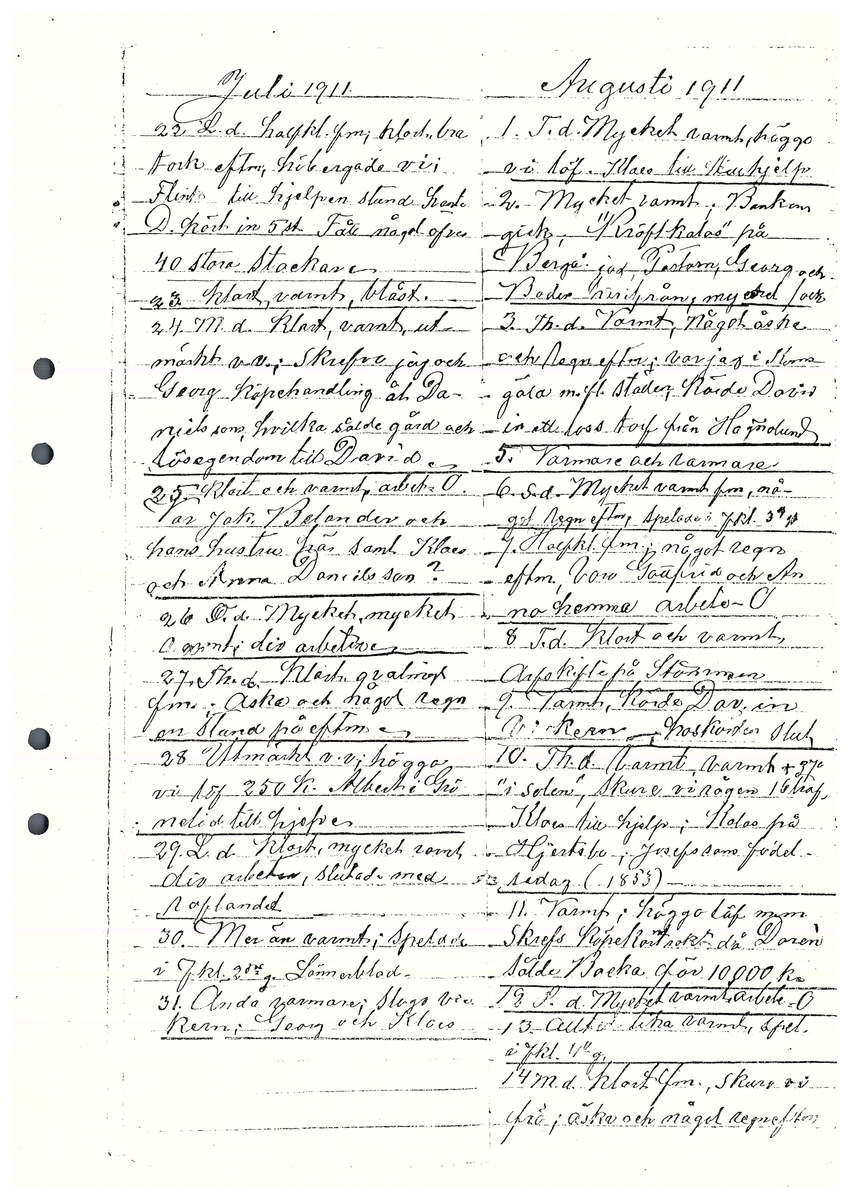 Juli 1911
22 L.d. Halfkl. fm, klart, bra
tork eftm, hibergade vi i
till hjelpen stund
D. kört in 5 st Fåll något öfver
40 stora stackare
23 klart, varmt, blåst.
24. M.d. Klart, varmt, ut-
märkt v.v.; Skrefvo jag och
Georg köpehandling åt Da-
nielssons, hvilka sålde gård och
lösegendom till David
25. Klart och varmt, arbete-O.
Var Jak. Belander och
hans hustru här samt Klaes
och Anna Danielsson?
26 O.d. Mycket, mycket
varmt; div arbeten
27. Th.d. Klart, qvalmigt
fm.; Åska och något regn
en stund på eftm
28 Utmärkt v.v; höggo
vi löf 250 k. Albert i Grö
nelid till hjelp
29. L.d. Klart, mycket varmt
div arbeten, slutade med
30. Mer än varmt; spelade
i Jkl. g. Lönnerblad.
31. Ända varmare; slogo vi
kern; Georg och Klaes
Augusti 1911
1. T.d. Mycket varmt, höggo
vi löf. Klaes till
2. Mycket varmt; Banken
gick, "Kröftkalas" på
Berga: jag, Pastorn, Georg och
Bader mycket folk
3. Th.d. Varmt, något åska
och regn eftm; var jag i
gåla m.fl. städer, körde David
in ett lass torf från Hagnölund
5. Varmare och varmare
6. S.d. Mycket varmt fm, nå-
got regn eftm, spelade i Jkl. 3
7. Halfkl. fm; något regn
eftm, Voro Gottfrid och An
na hemma arbete-O
8 T.d. Klart och varmt,
Arfskifte på Stommen
9. Varmt, körde Dav. in
vi kern slut
10. Th.d. Varmt, varmt + 37°
"i solen", skuro vi rågen 16 traf,
Klaes till hjelp; Kalas på
Hjertsbo; Josefssons födel-
sedag (1853)
11. Varmt; höggo löf m.m
Skrefs köpekontrakt då Doren
sålde Backa för 10,000 kr
12 L.d. Mycket varmt, arbete-O
13. Alltid lika varmt, spel.
i Jkl. 4 g.
14 M.d. Klart fm., skuro vi
frö; åska och något regn eftm